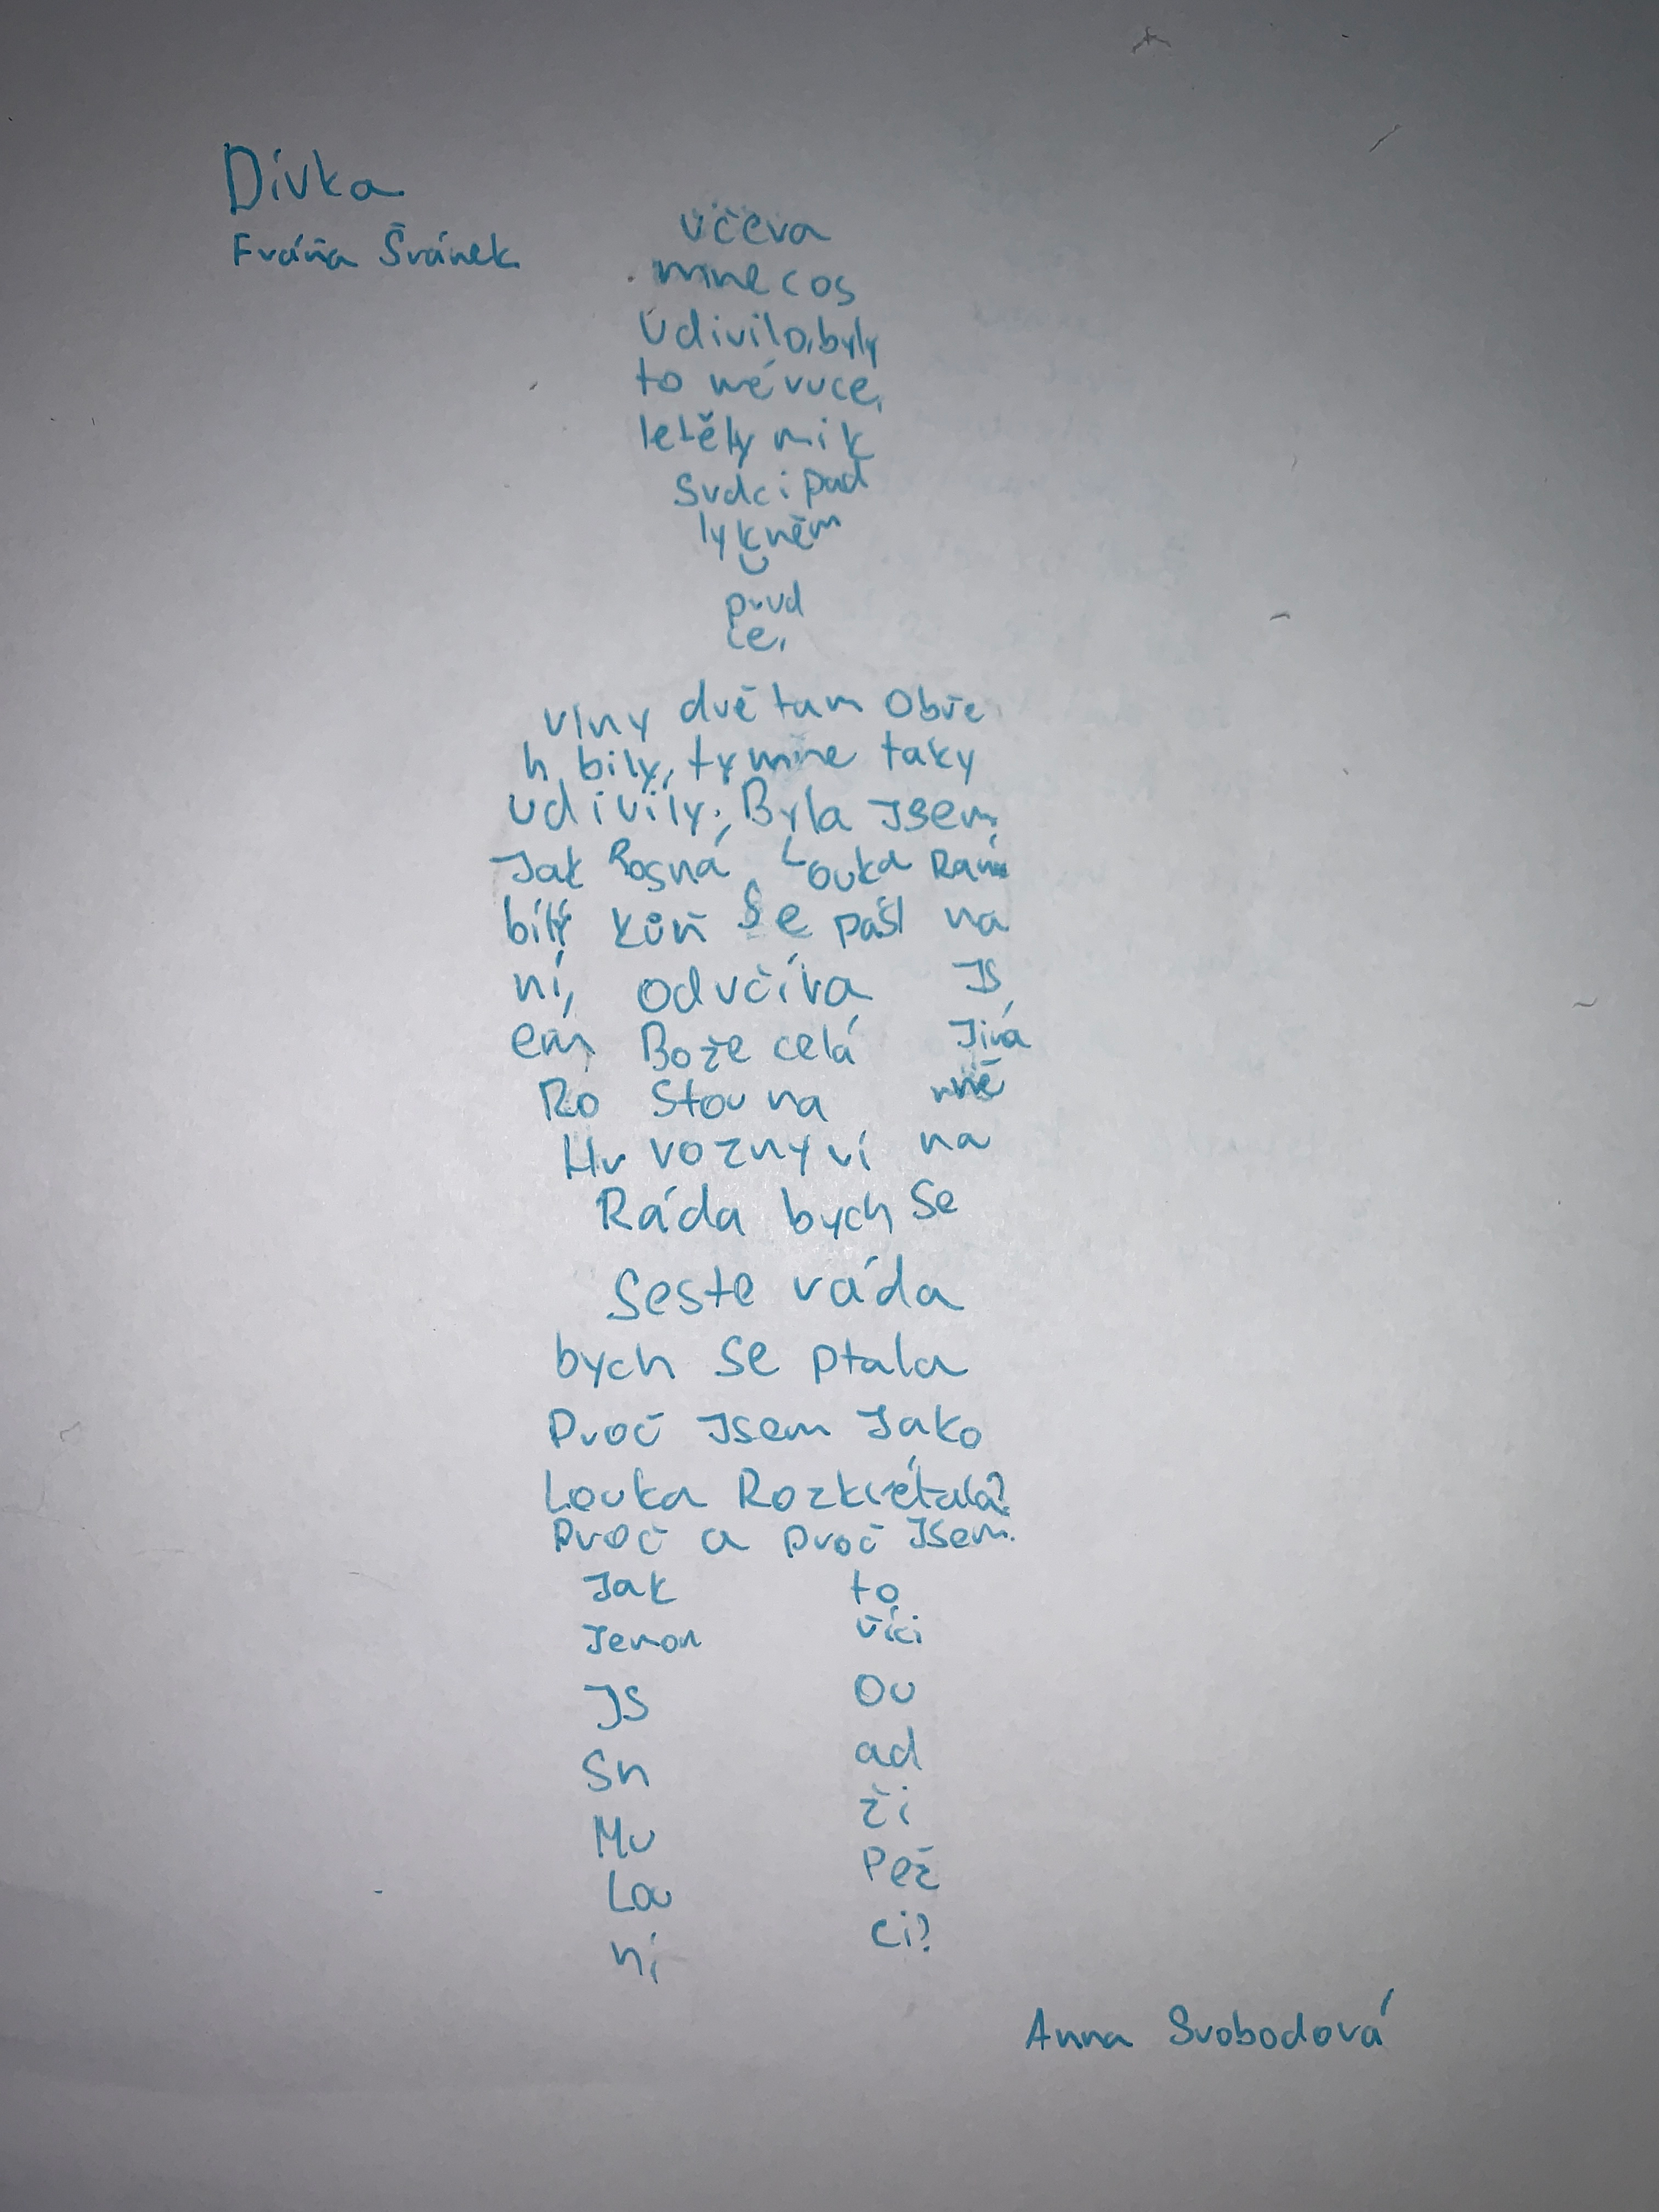 Dívka
Fráňa Šrámek
včera
mne cos
udivilo, byly
to mé ruce,
letěly mi k
srdci pad
ly k něm
u
prud
ce,
vlny dvě tam o bře
h bily, ty mne taky
udivily; Byla Jsem
Jak Rosná Louka Raní
bílý kůň se pásl na
ní, od včíra Js
em Bože celá Jiná
Ro Stou na mně
Hr vozny ví na
Ráda bych se
Seste ráda
bych se ptala
Proč Jsem Jako
Louka Rozkvétala?
Proč a proč Jsem
Jak to
Jenom říci
JS Ou
Sn ad
Mu ži
Lou Pež
ní ci?
Anna Svobodová